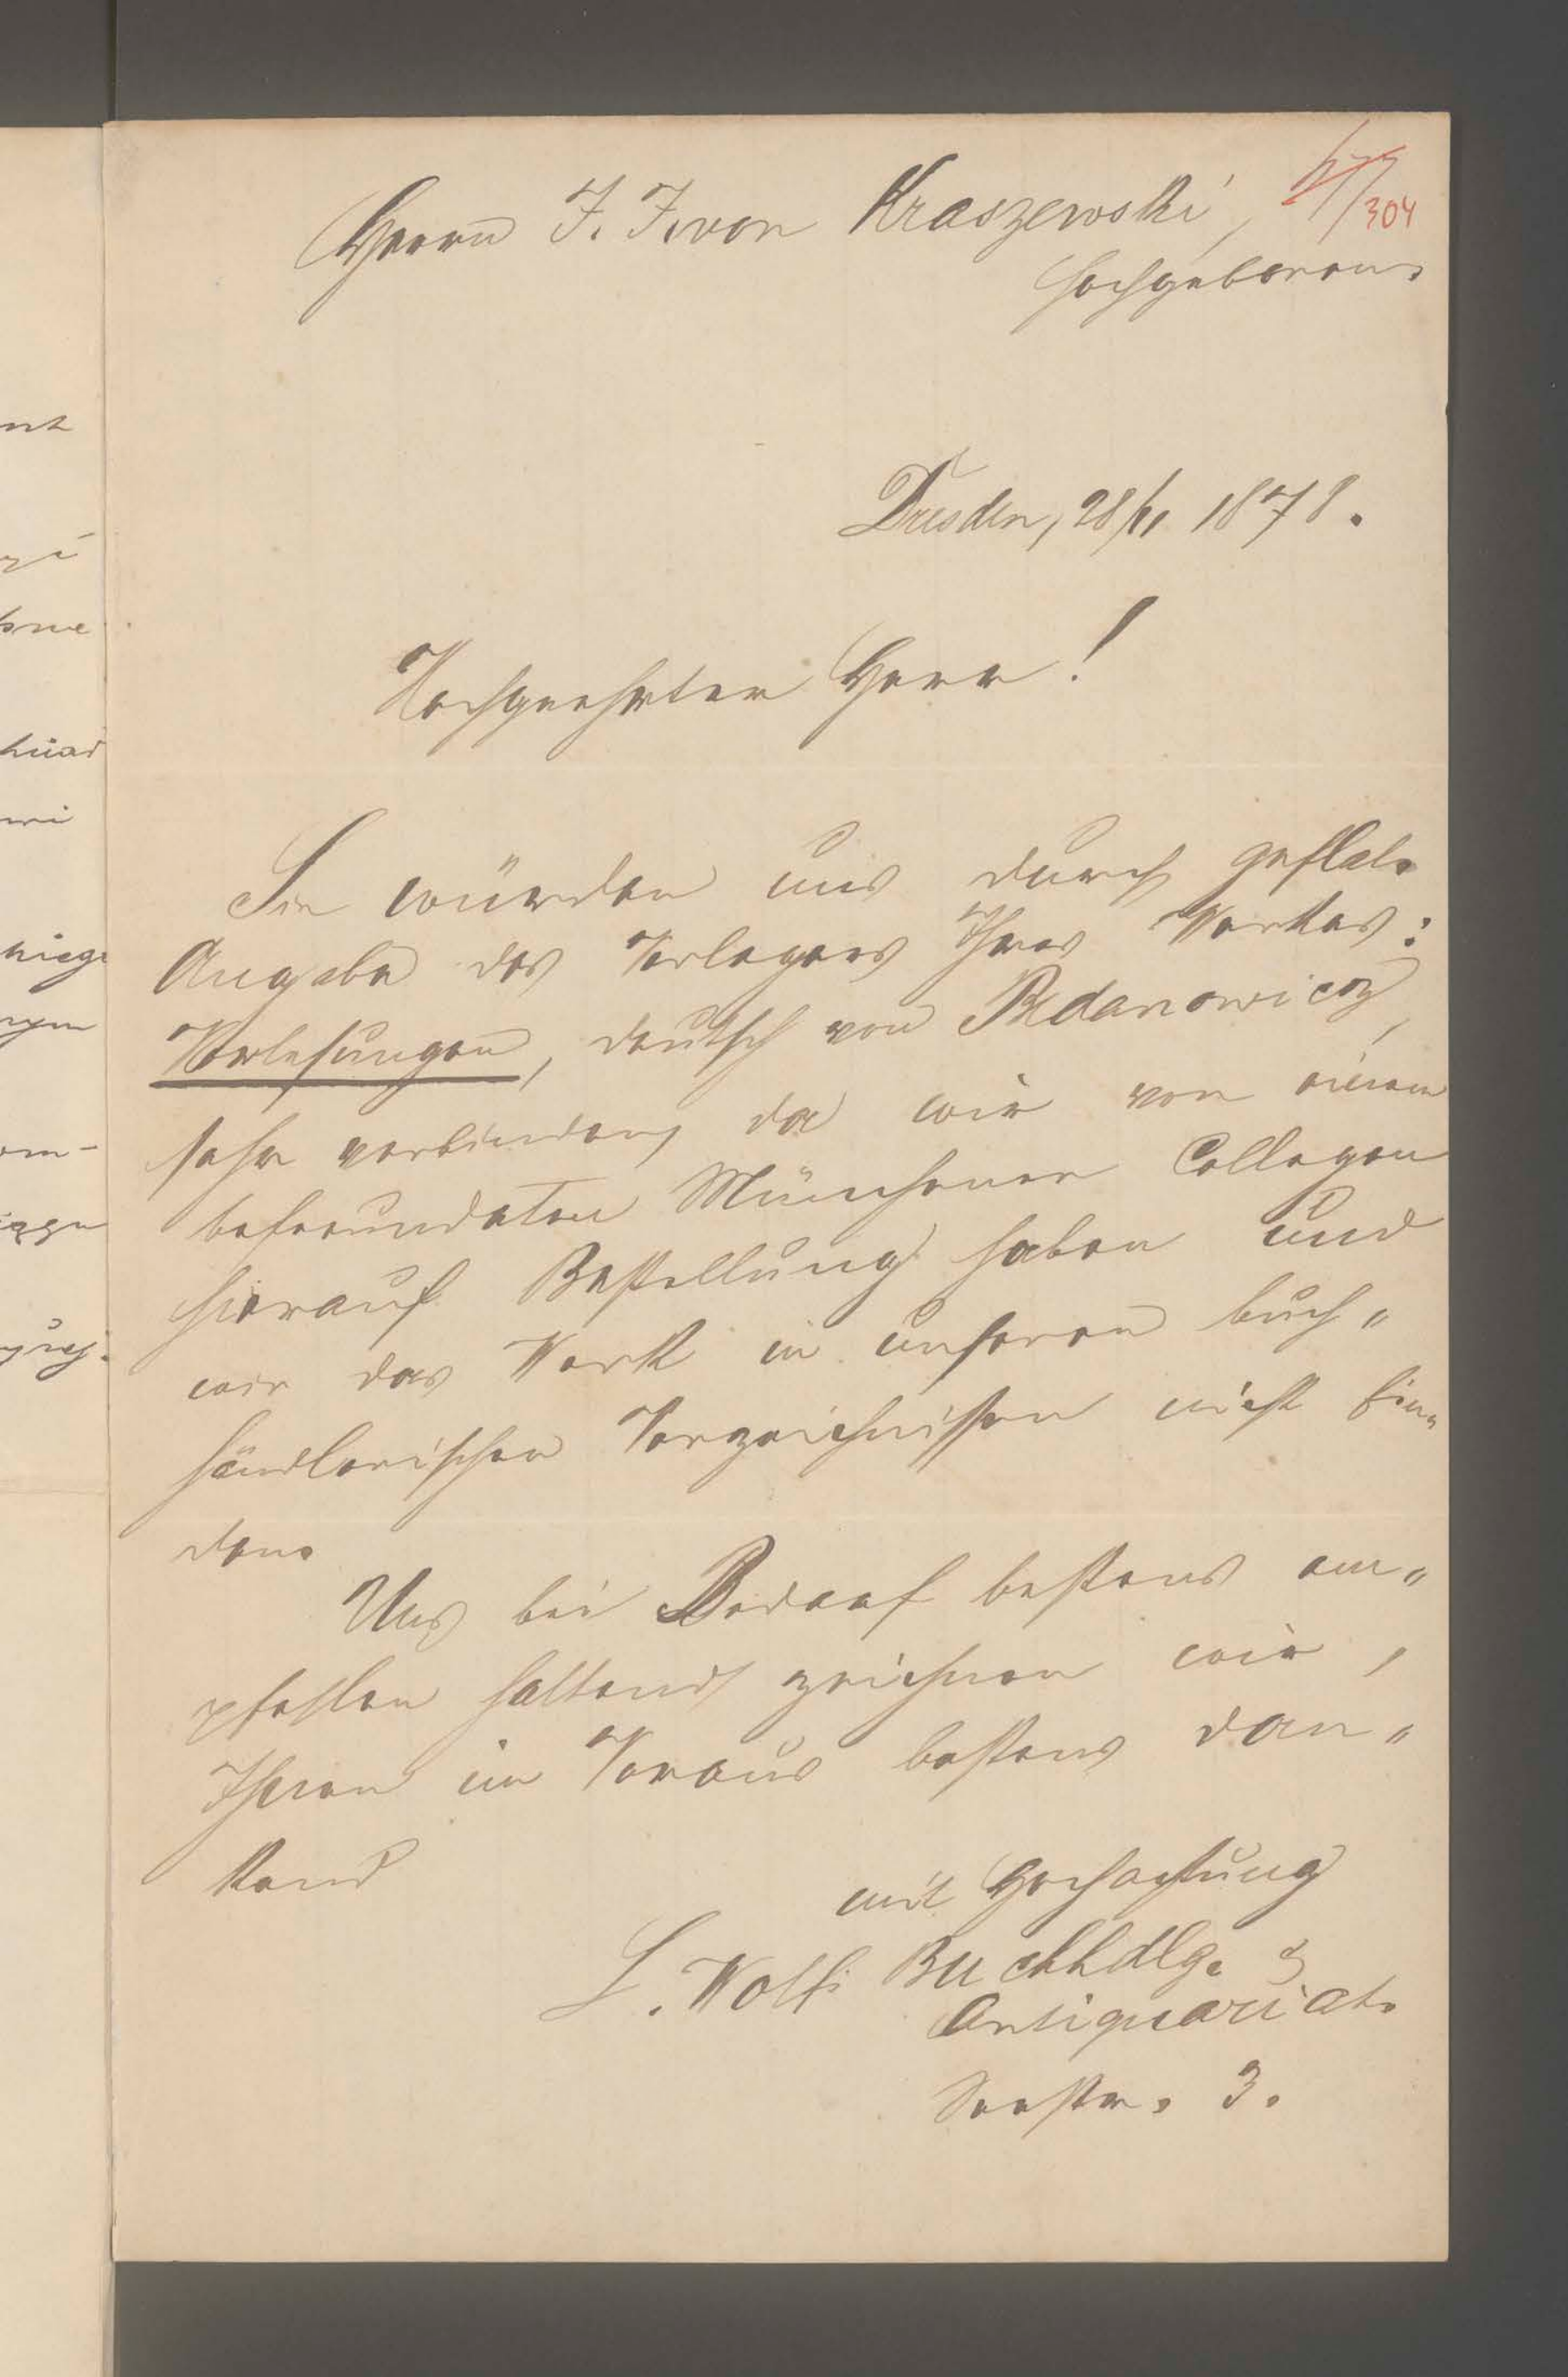 304
Herrn J. I. von Kraszewski,
Hochgeboren.
Dresden, 28/11 1878.
Hochgeehrter Herr!
Sie würden uns durch gefl.
Angabe des Verlegers Ihres Werkes:
Vorlesungen, deutsch von
sehr verbinden, da wir von einem
befreundeten Münchener Collegen
hierauf Bestellung haben und
wir das Werk in unseren buch„
händlerischen Verzeichnissen nicht fin„
den.
Uns bei Bedarf bestens em„
pfohlen haltend zeichnen wir,
Ihnen im Voraus bestens dan„
kend
mit Hochachtung
L. Wolfs Buchhdlg. &
Antiquariat.
Seestr. 3.